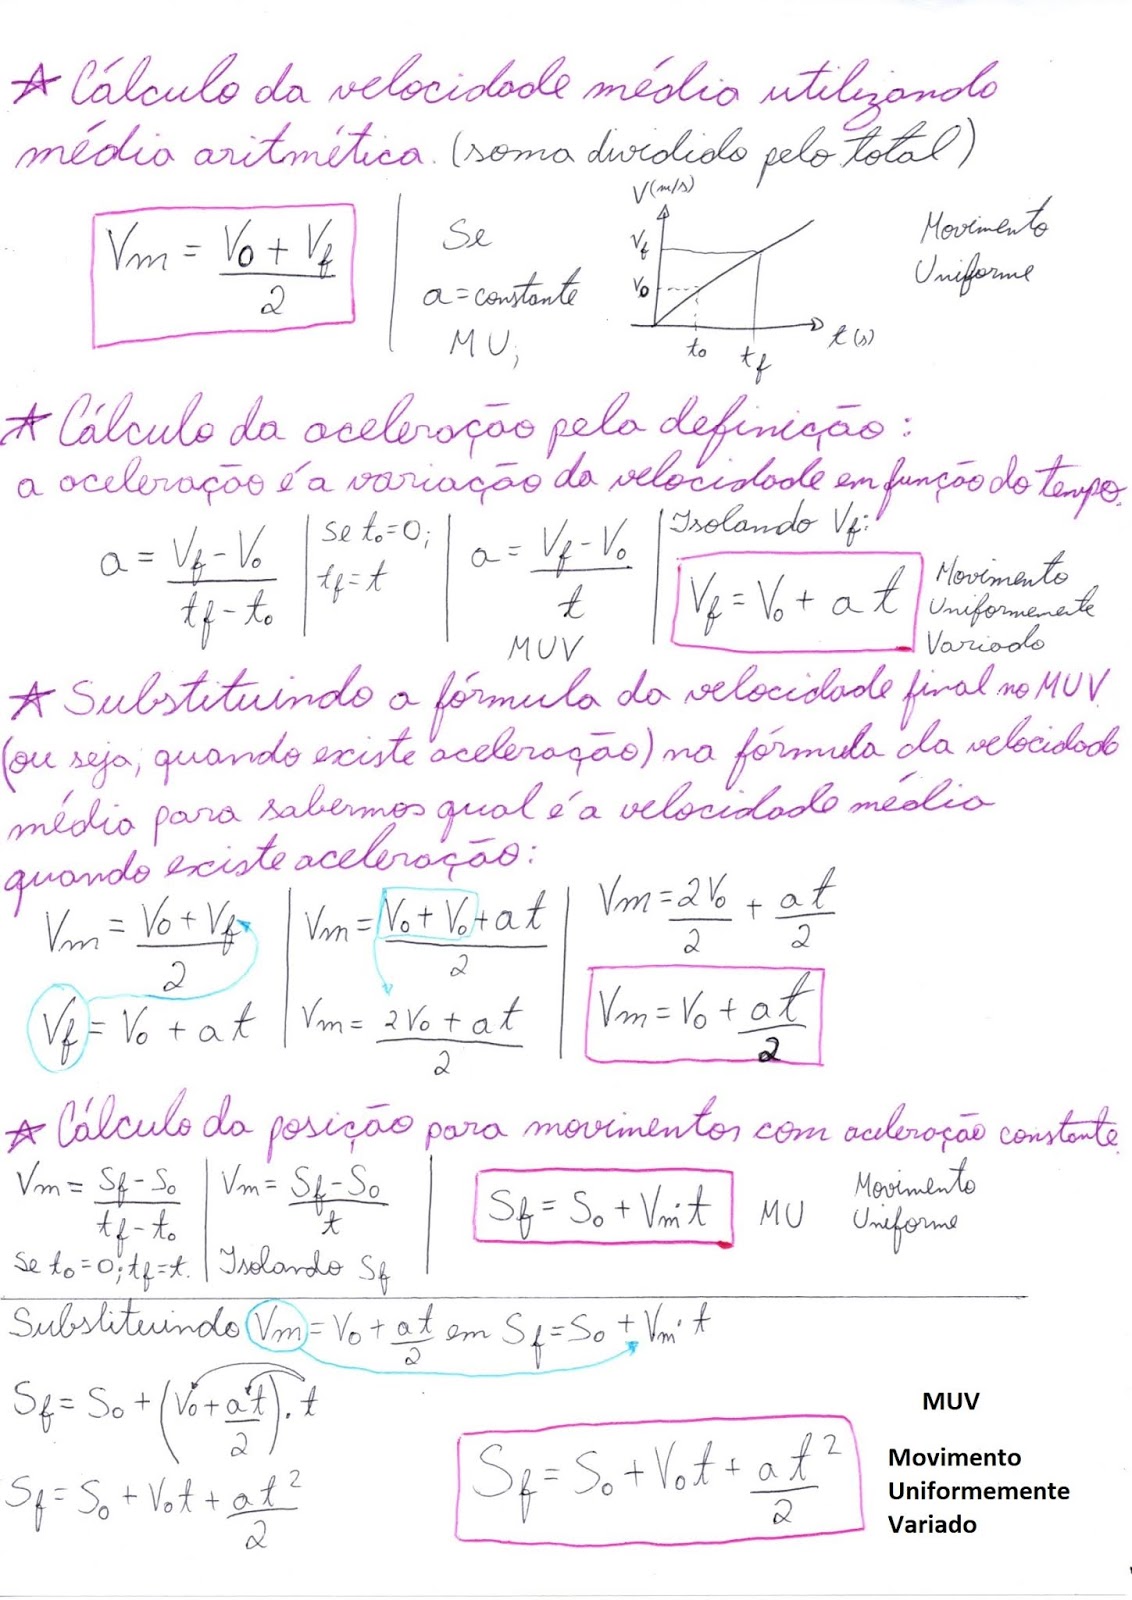 ☆ Cálculo da velocidade média utilizando
média aritmética. (soma dividido pelo total)
Vm = (V0 + Vf)/2
Se
a = constante
MU;
V(m/s)
Vf
V0
t0 tf
t(s)
Movimento
Uniforme
☆ Cálculo da aceleração pela definição:
a aceleração é a variação da velocidade em função do tempo.
a = (Vf - V0)/(tf - t0)
se t0=0;
tf=t
a = (Vf - V0)/t
MUV
Isolando Vf:
Vf = V0 + at
Movimento
Uniformemente
Variado
☆ Substituindo a fórmula da velocidade final no MUV
(ou seja, quando existe aceleração) na fórmula da velocidade
média para sabermos qual é a velocidade média
quando existe aceleração:
Vm = (V0 + Vf)/2
Vf = V0 + at
Vm = (V0 + V0 + at)/2
Vm = (2V0 + at)/2
Vm = 2V0/2 + at/2
Vm = V0 + at/2
☆ Cálculo da posição para movimentos com aceleração constante
Vm = (Sf - S0)/(tf - t0)
se t0=0; tf=t.
Vm = (Sf - S0)/t
Isolando Sf
Sf = S0 + Vm·t
MU
Movimento
Uniforme
Substituindo Vm = V0 + at/2 em Sf = S0 + Vm·t
Sf = S0 + (V0 + at/2).t
Sf = S0 + V0t + at²/2
Sf = S0 + V0t + at²/2
MUV
Movimento
Uniformemente
Variado